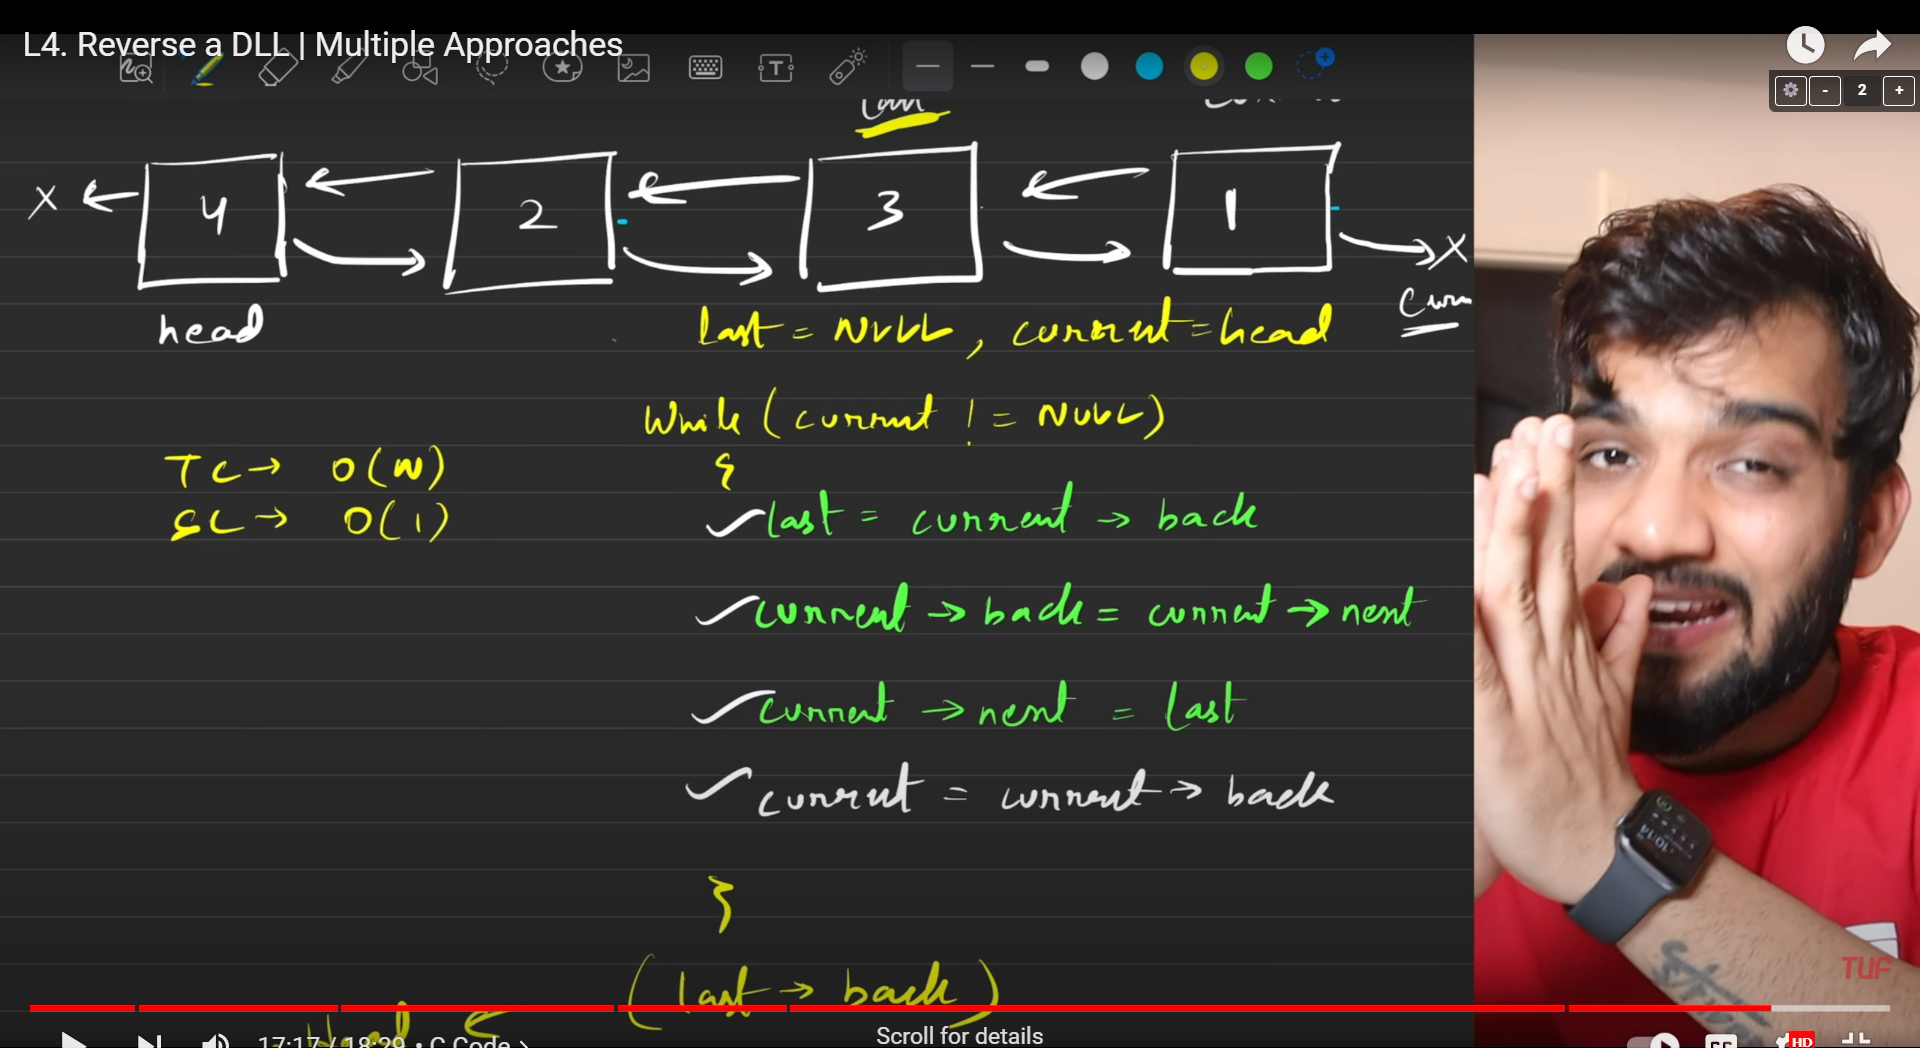 L4. Reverse a DLL | Multiple Approaches
- 2 +
T
X 4 2 3 1 X
head
last = NULL, current = head
Curr
While (current != NULL)
{
TC → O(N)
SC → O(1)
last = current → back
current → back = current → next
current → next = last
current = current → back
}
(last → back)
head ←
17:17 / 18:29 • C Code >
Scroll for details
CC
HD
TUF
10:14